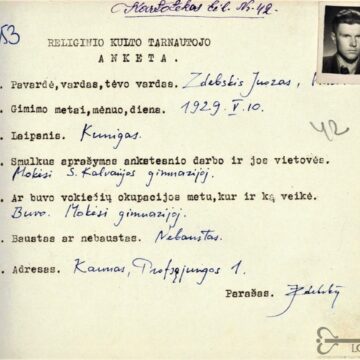 Kartotekos bil. Nr. 42.
53
RELIGINIO KULTO TARNAUTOJO
ANKETA.
. Pavardė, vardas, tėvo vardas. Zdebskis Juozas,
. Gimimo metai, mėnuo, diena. 1929. V. 10.
42
. Laipsnis. Kunigas.
. Smulkus aprašymas ankstesnio darbo ir jos vietovės.
Mokėsi S. Kalvarijos gimnazijoj.
. Ar buvo vokiečių okupacijos metu, kur ir ką veikė.
Buvo. Mokėsi gimnazijoj.
. Baustas ar nebaustas. Nebaustas.
. Adresas. Kaunas, Profsąjungos 1.
Parašas. Zdebskis